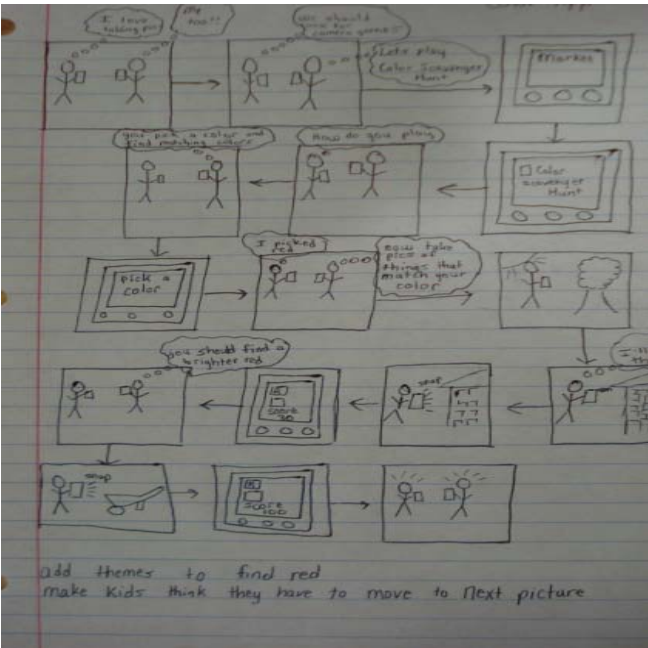 I love
taking pics
me
too!!
we should
camera games!!
Lets play
Color Scavenger
Hunt
Market
Color
Scavenger
Hunt
How do you play
you pick a color and
find matching colors
pick a
color
I picked
red
now take
pics of
things that
match your
color
snap
score
30
you should find a
brighter red
snap
score
100
add themes to find red
make kids think they have to move to next picture